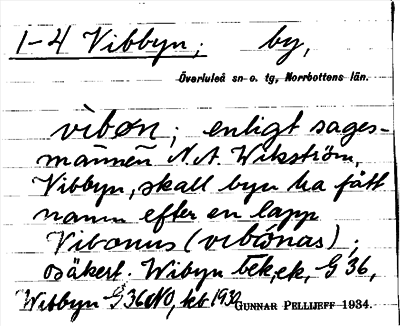 1-4 Vibbyn; by,
Överluleå sn o. tg, Norrbottens län.
vìbøn; enligt sages-
mannen N. A. Wikström,
Vibbyn, skall byn ha fått
namn efter en lapp
Vibonus (vibōnas);
osäkert. Wibyn Eek, ek, G 36,
Wibbyn G 36 NO, kb 1930
GUNNAR PELLIJEFF 1934.